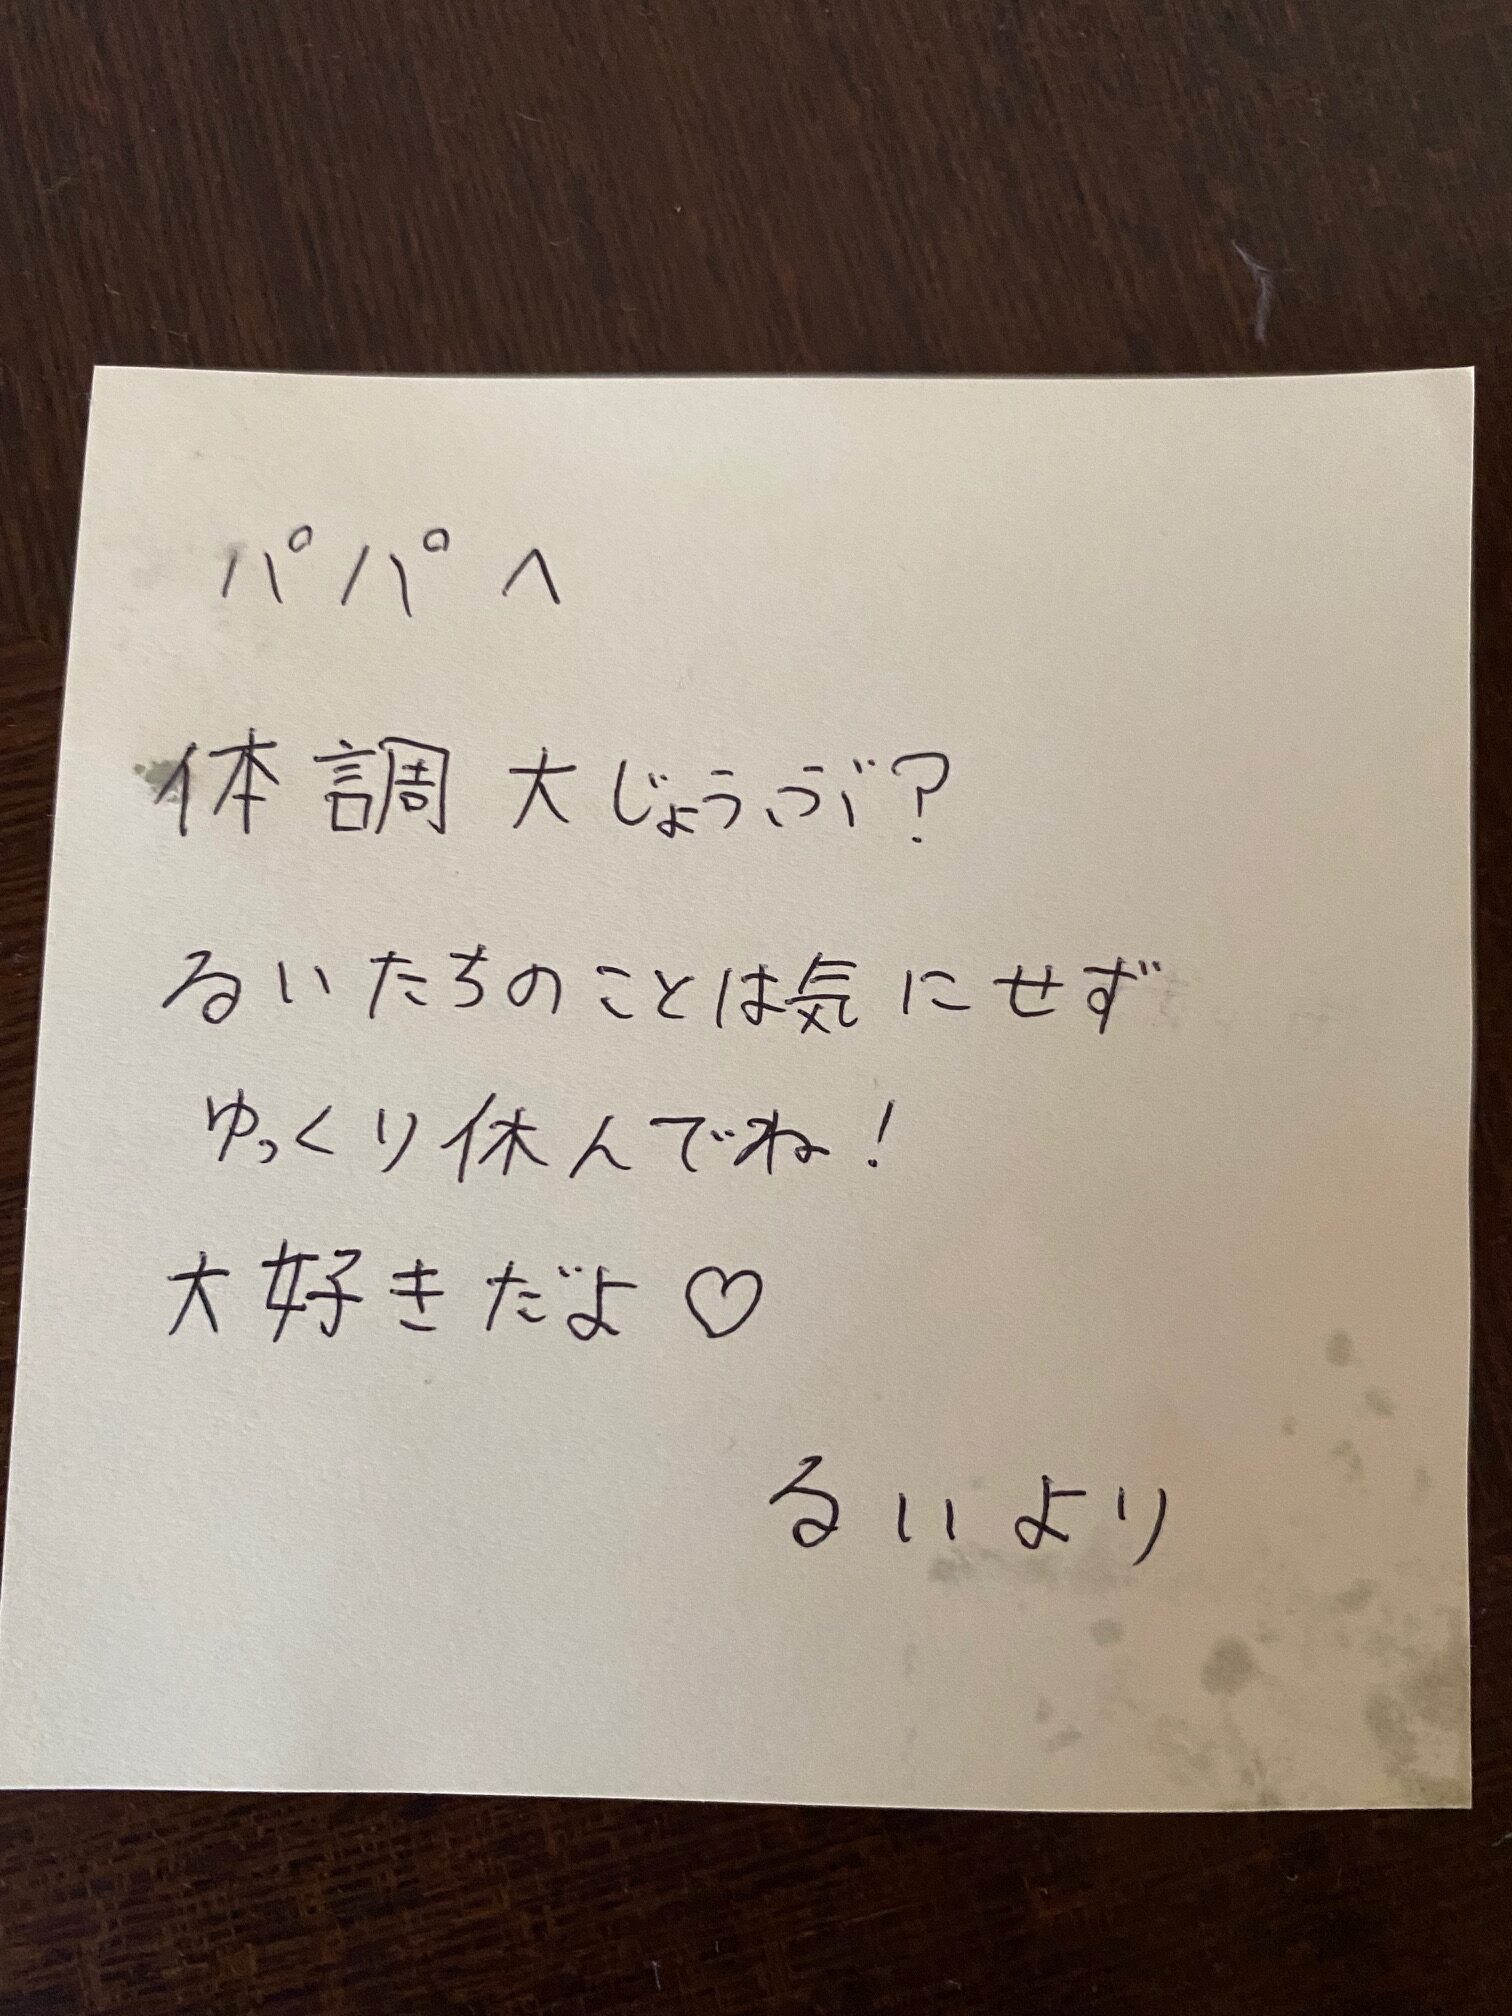 パパへ
体調大じょうぶ?
るいたちのことは気にせず
ゆっくり休んでね!
大好きだよ♡
るいより